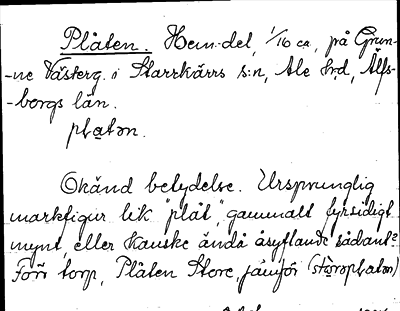 Plåten. Hem.del, 1/16 ca, på Grun-
-ne Västerg. i Starrkärrs s:n, Ale hrd, Älfs-
-borgs län.
platon.
Okänd betydelse. Ursprunglig
markfigur lik "plåt", gammalt fyrsidigt
mynt, eller kanske ändå åsyftande sådant?
Förr torp, Plåten Store, jämför (störoplaton)